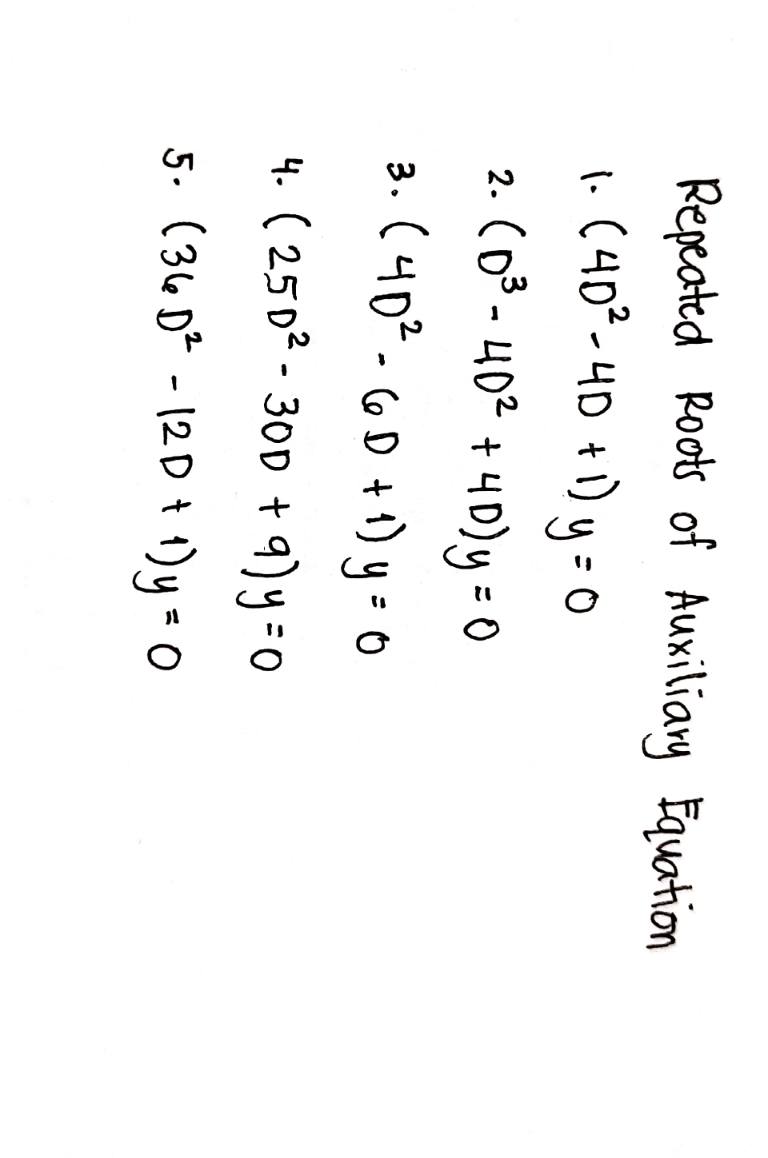 Repeated Roots of Auxiliary Equation
1. (4D² - 4D + 1) y = 0
2. (D³ - 4D² + 4D) y = 0
3. (4D² - 6D + 1) y = 0
4. (25D² - 30D + 9) y = 0
5. (36D² - 12D + 1) y = 0